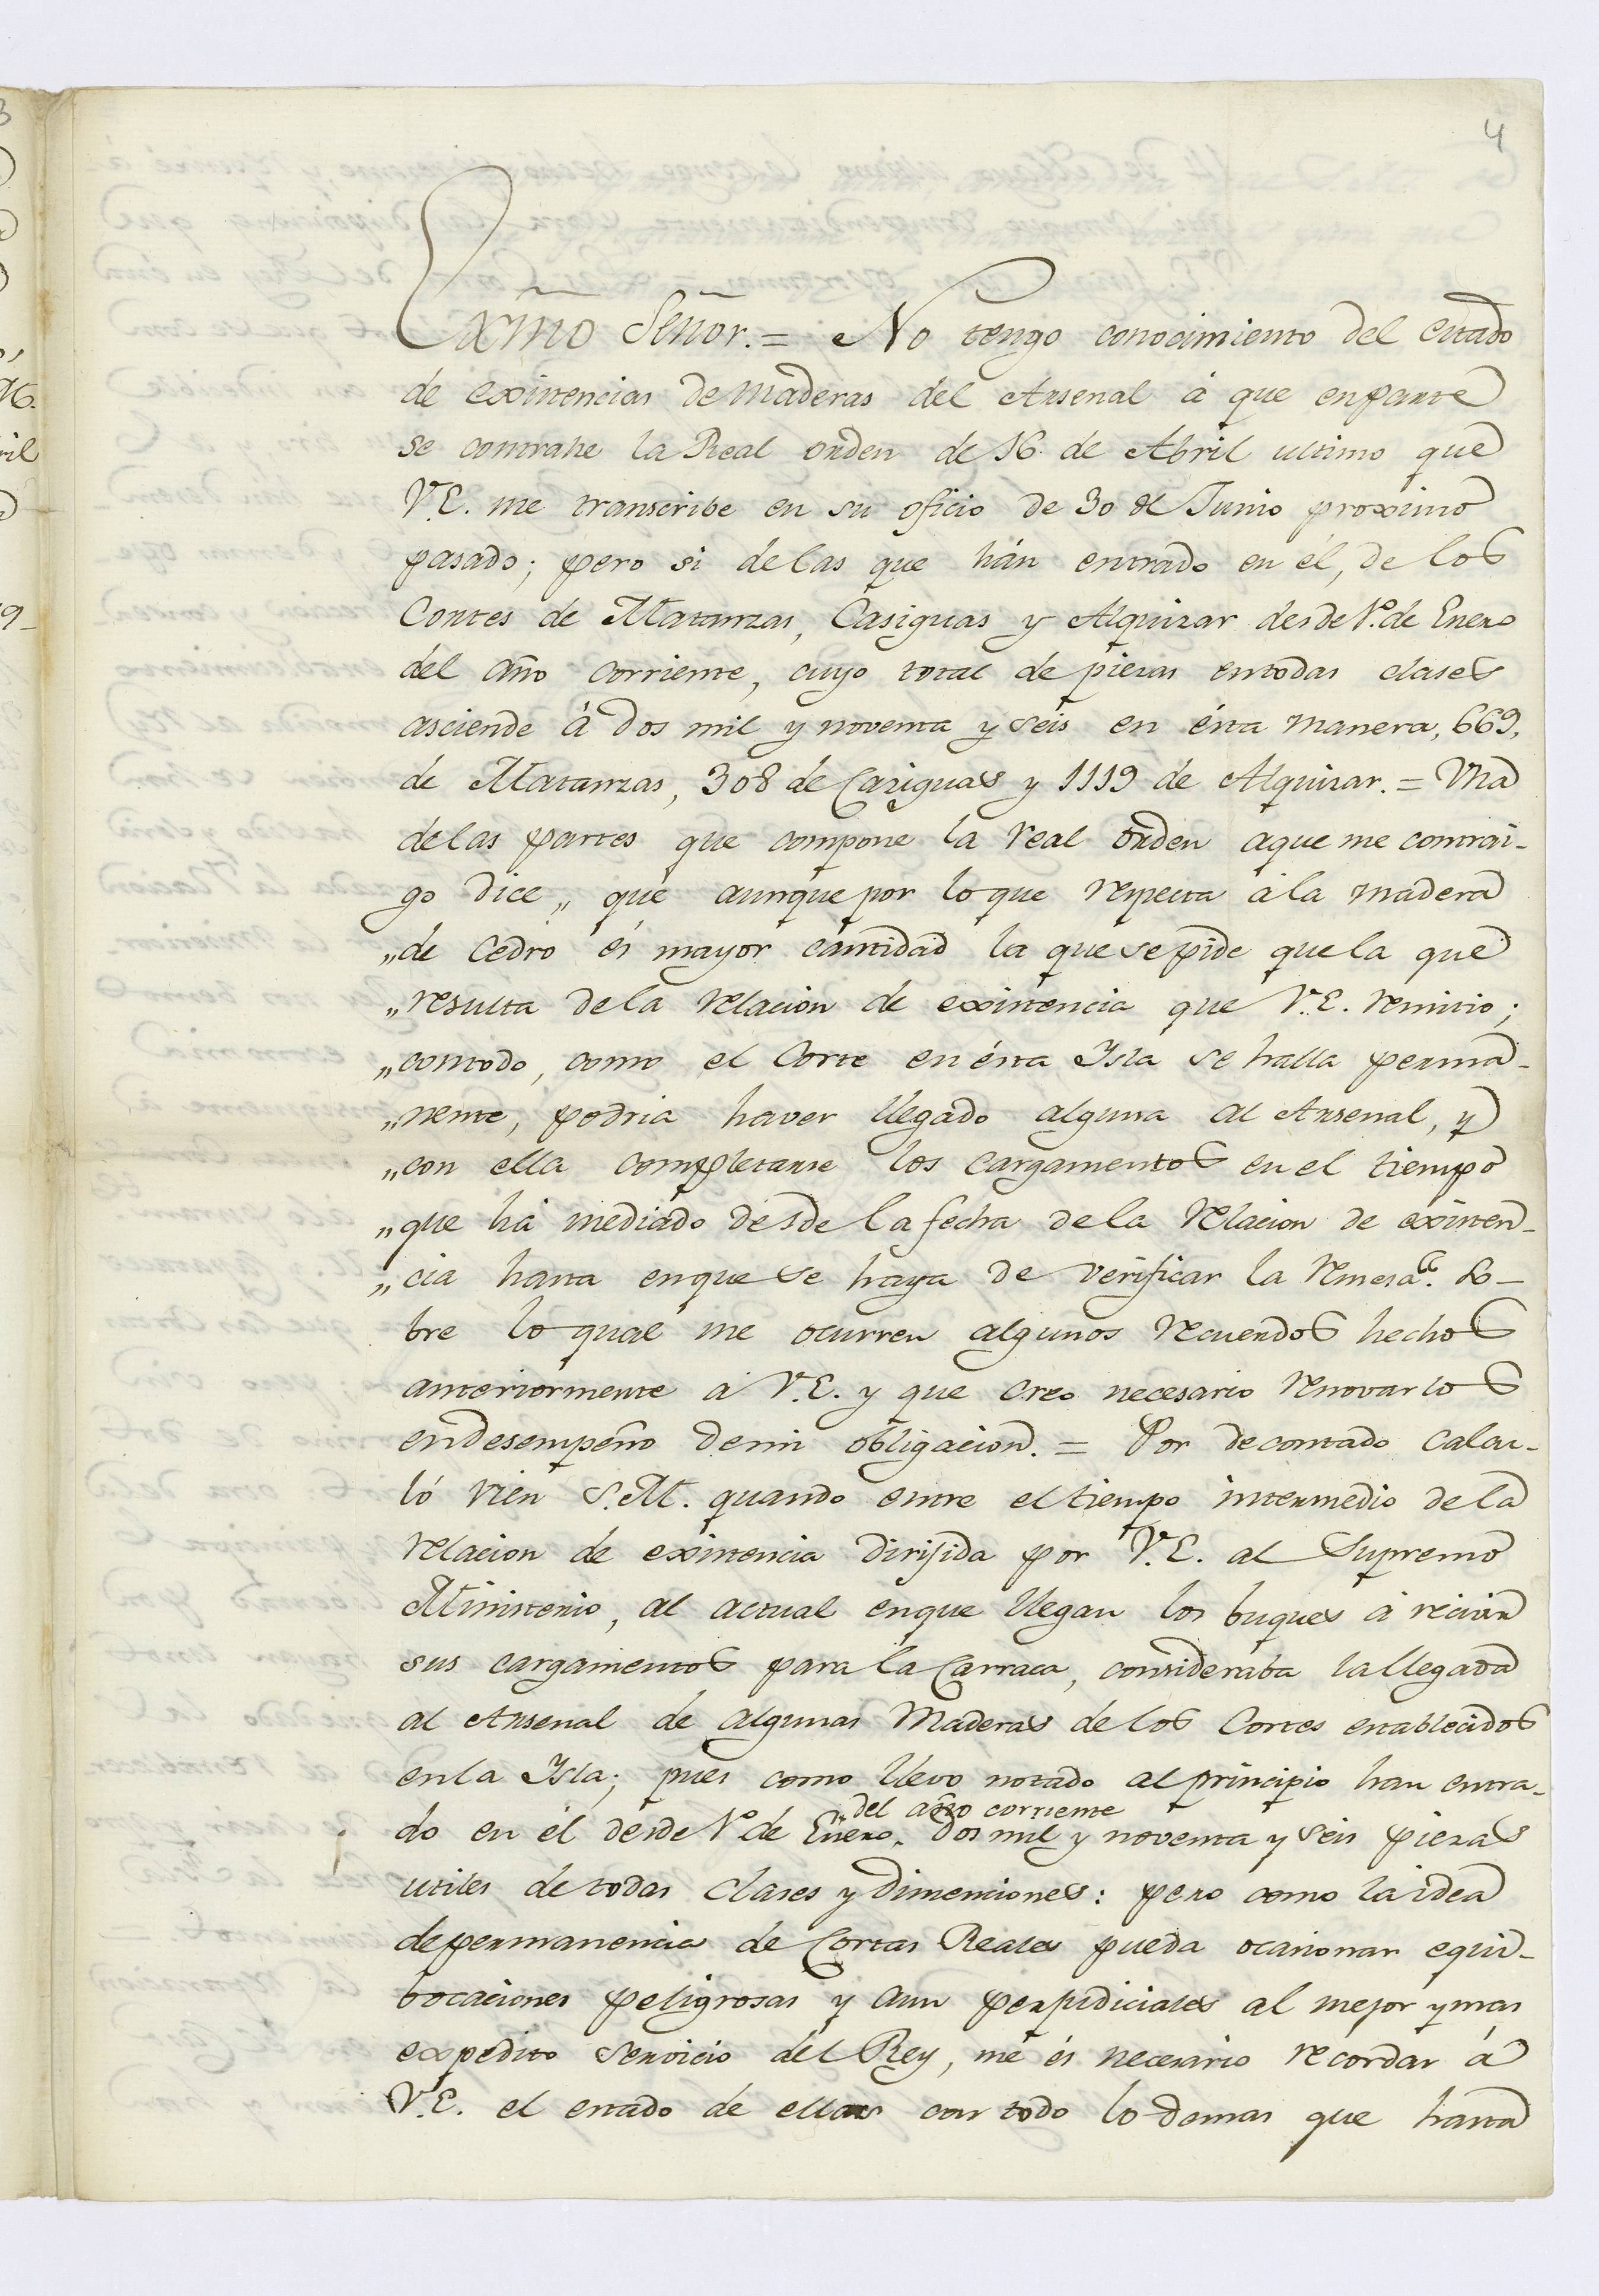 4
Exmõ Señor. = No tengo conocimiento del estado
de existencias de maderas del Arsenal á que en parte
se contrahe la Real orden de 16. de Abril ultimo que
V.E. me transcribe en su oficio de 30 de Junio proximo
pasado; pero si de las que hán entrado en él, de los
Cortes de Matanzas, Casiguas y Alquizar desde 1.º de Enero
del año corriente, cuyo total de piezas en todas clases
asciende á dos mil y noventa y seis en ésta manera, 669,
de Matanzas, 308 de Casiguas y 1119 de Alquizar. = Una
de las partes que compone la real orden a que me contrai-
go dice „ que aunque por lo que respecta á la madera
„de Cedro és mayor cantidad la que se pide que la que
„resulta de la relacion de existencia que V.E. remitio;
„con todo, como el Corte en ésta Isla se halla perma-
„nente, podria haver llegado alguna al Arsenal, y
„con ella completarse los cargamentos en el tiempo
„que há mediado desde la fecha de la relacion de existen-
„cia hasta en que se haya de verificar la remesa“. So-
bre lo qual me ocurren algunos recuerdos hechos
anteriormente á V.E. y que creo necesario renovarlos
en desempeño de mi obligacion. = Por de contado calcu-
ló vien S.M. quando entre el tiempo intermedio de la
relacion de existencia dirijida por V.E. al Supremo
Ministerio, al actual en que llegan los buques á recivir
sus cargamentos para la Carraca, consideraba la llegada
al Arsenal de algunas Maderas de los Cortes establecidos
en la Isla; pues como llevo notado al principio han entra-
del año corriente
do en él desde 1.º de Enero dos mil y noventa y seis piezas
utiles de todas clases y dimenciones: pero como la idea
de permanencia de Cortas Reales pueda ocasionar equi-
bocaciones peligrosas y aun perjudiciales al mejor y mas
expedito servicio del Rey, me és necesario recordar á
V.E. el estado de ellas con todo lo demas que hasta